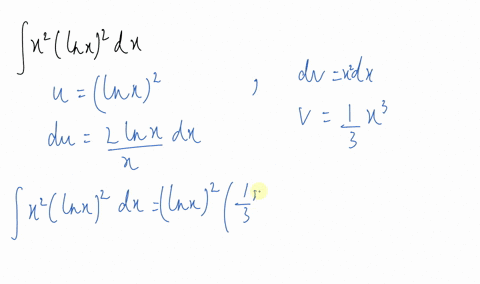 ∫x²(lnx)² dx
u = (lnx)² , dv = x²dx
du = 2 lnx / x dx v = 1/3 x³
∫x²(lnx)² dx = (lnx)² (1/3